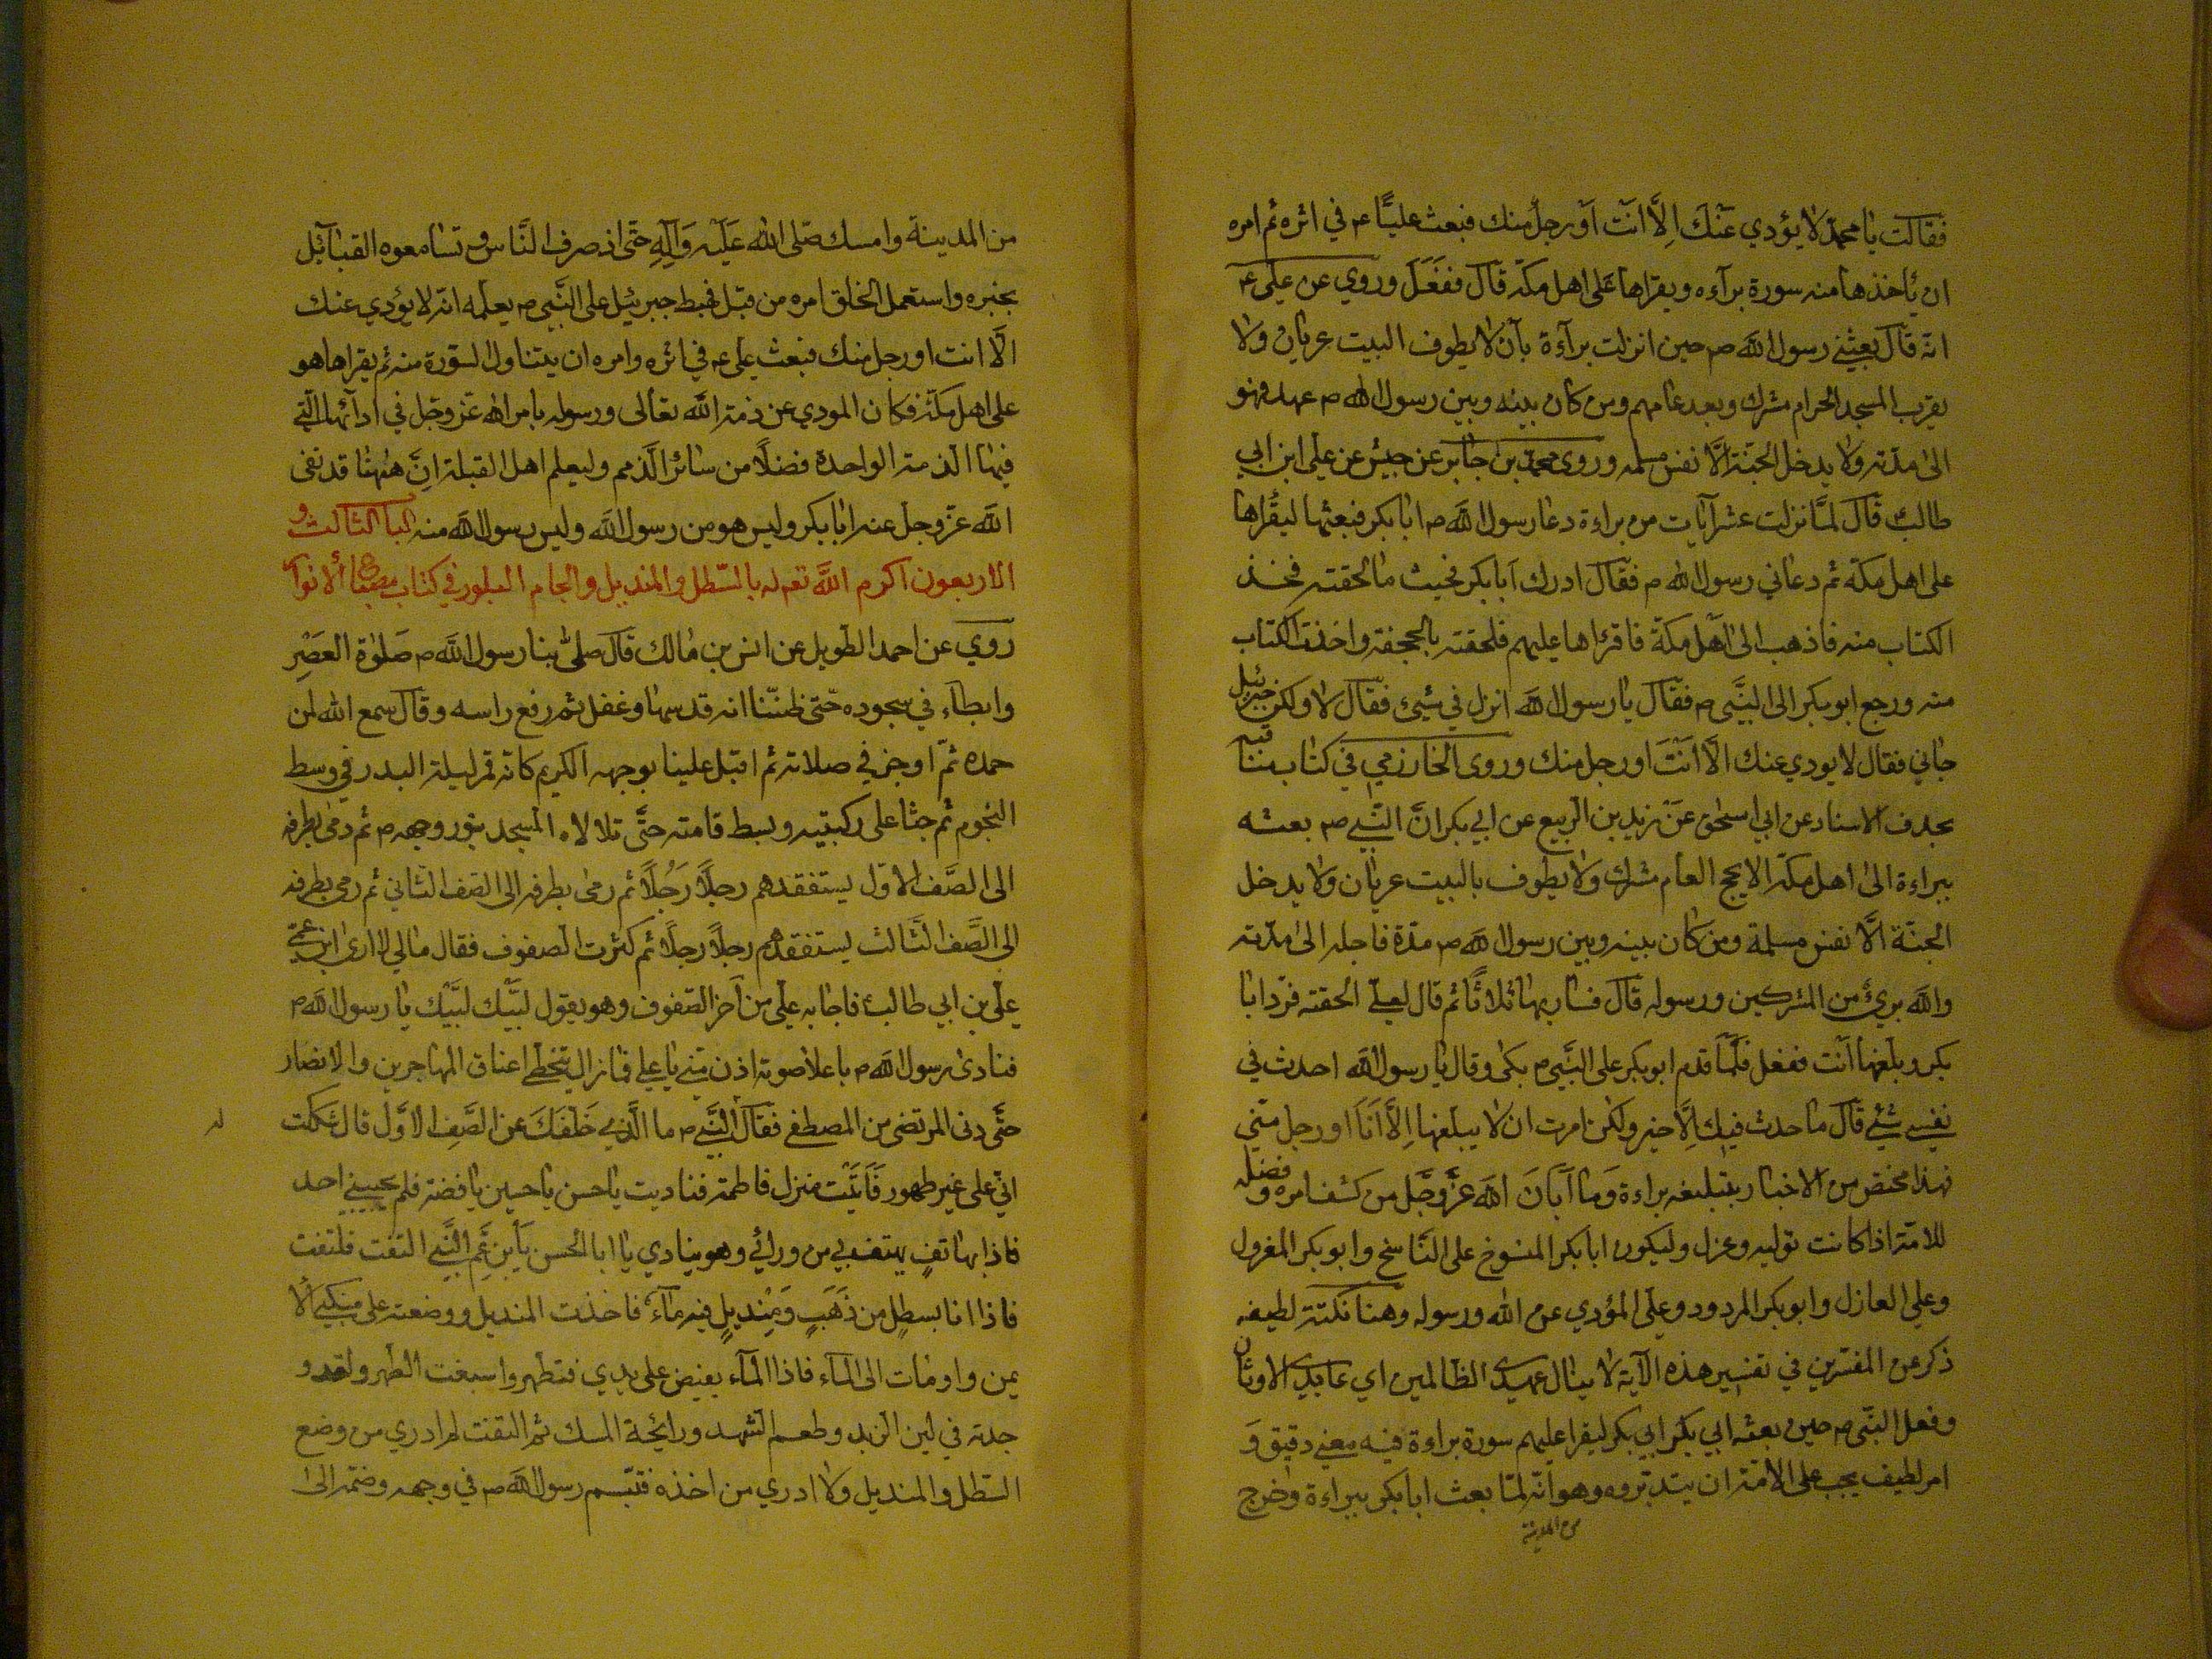 فقالت يا محمد لا يؤدي عنك الا انت او رجل منك فبعث عليا ع في اثره ثم امره
ان يأخذها منه سورة براءه ويقراها على اهل مكة قال ففعل وروي عن علي ع
انه قال بعثني رسول الله ص حين انزلت براءة بأن لا يطوف البيت عريان ولا
يقرب المسجد الحرام مشرك وبعد عامهم ومن كان بينه وبين رسول الله ص عهد فهو
الى مدته ولا يدخل الجنة الا نفس مسلمه وروى محمد بن جابر عن حبيش عن علي ابن ابي
طالب قال لما نزلت عشر آيات من براءة دعا رسول الله ص ابا بكر فبعثها ليقراها
على اهل مكة ثم دعاني رسول الله ص فقال ادرك ابا بكر فحيث ما لحقته فخذ
الكتاب منه فاذهب الى اهل مكة فاقراها عليهم فلحقته بالجحفة واخذت الكتاب
منه ورجع ابو بكر الى النبي ص فقال يا رسول الله انزل في شيئ فقال لا ولكن جبرئيل
جاني فقال لا يودي عنك الا انت او رجل منك وروى الخارزمي في كتاب مناقبه
بحذف الاسناد عن ابي اسحق عن زيد بن الربيع عن ابي بكر ان النبي ص بعثه
ببراءة الى اهل مكة الا يحج العام مشرك ولا يطوف بالبيت عريان ولا يدخل
الجنة الا نفس مسلمة ومن كان بينه وبين رسول الله ص مدة فاجله الى مدته
والله بريء من المشركين ورسوله قال فسار بها ثلاثا ثم قال لعلي الحقته فرد ابا
بكر وبلغها انت ففعل فلما قدم ابو بكر على النبي ص بكى وقال يا رسول الله احدث في
نفسي شيء قال ما حدث فيك الا خير ولكن امرت ان لا يبلغها الا انا او رجل مني
فهذا مختص من الاخبار بتبليغه براءة وما ابان الله عز وجل من كشف امره و فضله
للامة اذا كانت توليه وعزل وليكون ابا بكر المنسوخ على الناسخ وابو بكر المعزول
وعلي العازل وابو بكر المردود وعلي المؤدي عن الله ورسوله وهنا نكتة لطيفه
ذكر عن المفسرين في تفسير هذه الآية لا ينال عهدي الظالمين اي عابدي الاوثان
وفعل النبي ص حين بعثه ابي بكر ابي بكر ليقرا عليهم سورة براءة فيه معنى دقيق و
امر لطيف يجب على الامة ان يتدبروه وهو انه لما بعث ابا بكر ببراءة وخرج
من المدينة
من المدينة وامسك صلى الله عليه وآله حتى انصرف الناس وتسامعوه القبائل
بخبره واستعمل الخلق امره من قبل فهبط جبرئيل على النبي ص يعلمه انه لا يؤدي عنك
الا انت او رجل منك فبعث علي ع في اثره وامره ان يتناول السورة منه ثم يقراها هو
على اهل مكة فكان المودي عن ذمة الله تعالى ورسوله بامر الله عز وجل في ادائها التي
فيها الذمة الواحدة فضلا من سائر الذمم وليعلم اهل القبلة ان ههنا قد نفى
الله عز وجل عنه ابا بكر وليس هو من رسول الله وليس رسول الله منه الباب الثالث و
الاربعون اكرم الله تعم له بالسطل والمنديل والجام البلور في كتاب مصباح الانوار
روي عن احمد الطويل عن انس بن مالك قال صلى بنا رسول الله ص صلوة العصر
وابطاء في سجوده حتى ظننا انه قد سها وغفل ثم رفع راسه وقال سمع الله لمن
حمده ثم اوجز في صلاته ثم اقبل علينا بوجهه الكريم كانه قمر ليلة البدر في وسط
النجوم ثم جثا على ركبتيه وبسط قامته حتى تلالاء المسجد بنور وجهه ص ثم رمى بطرفه
الى الصف الاول ليستفقدهم رجلا رجلا ثم رمى بطرفه الى الصف الثاني ثم رمى بطرفه
الى الصف الثالث ليستفقدهم رجلا رجلا ثم كثرت الصفوف فقال ما لي لا ارى ابن عمي
علي بن ابي طالب فاجابه علي من آخر الصفوف وهو يقول لبيك لبيك يا رسول الله ص
فنادى رسول الله ص باعلا صوته ادن مني يا علي فما زال يتخطى اعناق المهاجرين والانصار
حتى دنى المرتضى من المصطفى فقال النبي ص ما الذي خلفك عن الصف الاول قال شككت
اني على غير طهور فأتيت منزل فاطمة فناديت يا حسن يا حسين يا فضة فلم يجيبني احد
فاذا بهاتف يهتف بي من ورائي وهو ينادي يا ابا الحسن يابن عم النبي التفت فلتفت
فاذا انا بسطل من ذهب ومنديل فيه ماء فاخذت المنديل ووضعته على منكبي الا
يمن واومات الى الماء فاذا الماء يفيض على يدي فتطهر واسبغت الطهر ولقد و
جدته في لين الزبد وطعم الشهد ورائحة المسك ثم التفت لم ادري من وضع
السطل والمنديل ولا ادري من اخذه فتبسم رسول الله ص في وجهه وضمه الى